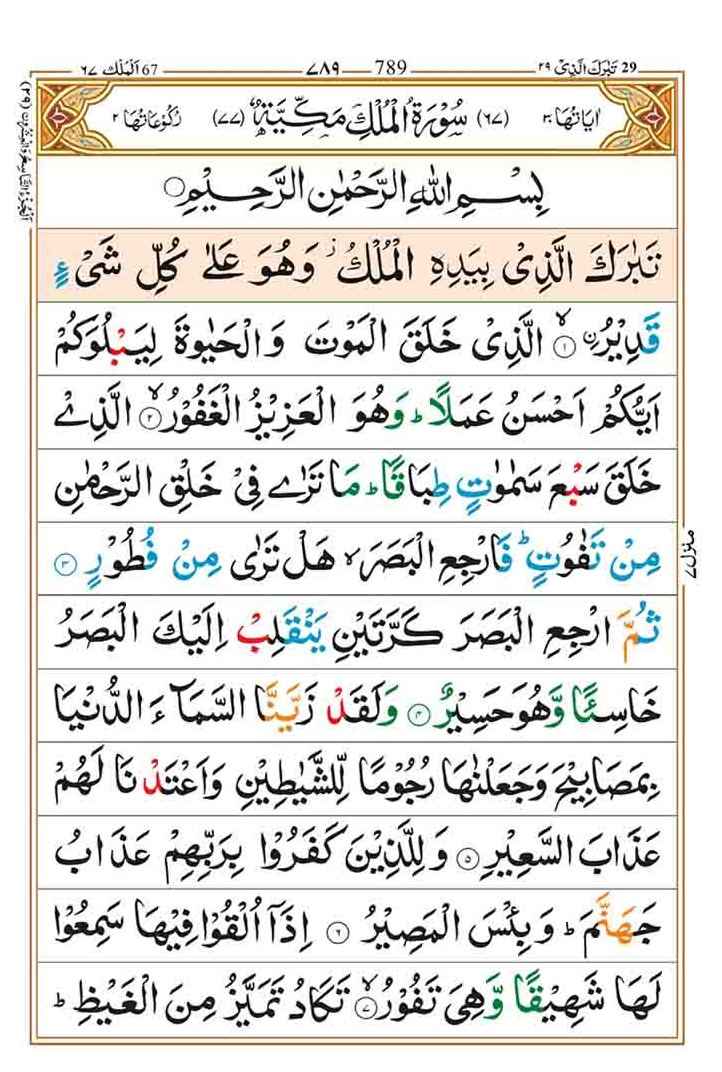 29 تَبٰرَكَ الَّذِیْ ٢٩ 789 ٧٨٩ 67 اَلْمُلْك ٦٧
اٰیَاتُهَا ٣٠ (٦٧) سُوْرَةُ الْمُلْكِ مَكِّیَّةٌ (٧٧) رُكُوْعَاتُهَا ٢
بِسْمِ اللّٰهِ الرَّحْمٰنِ الرَّحِیْمِ
تَبٰرَكَ الَّذِیْ بِیَدِهِ الْمُلْكُ ز وَهُوَ عَلٰى كُلِّ شَیْءٍ
قَدِیْرُ ۨ ۙ ١ الَّذِیْ خَلَقَ الْمَوْتَ وَالْحَیٰوةَ لِیَبْلُوَكُمْ
اَیُّكُمْ اَحْسَنُ عَمَلًا ؕ وَهُوَ الْعَزِیْزُ الْغَفُوْرُ ۙ ٢ الَّذِیْ
خَلَقَ سَبْعَ سَمٰوٰتٍ طِبَاقًا ؕ مَا تَرٰى فِیْ خَلْقِ الرَّحْمٰنِ
مِنْ تَفٰوُتٍ ؕ فَارْجِعِ الْبَصَرَ ۙ هَلْ تَرٰى مِنْ فُطُوْرٍ ٣
ثُمَّ ارْجِعِ الْبَصَرَ كَرَّتَیْنِ یَنْقَلِبْ اِلَیْكَ الْبَصَرُ
خَاسِئًا وَّهُوَ حَسِیْرٌ ٤ وَلَقَدْ زَیَّنَّا السَّمَآءَ الدُّنْیَا
بِمَصَابِیْحَ وَجَعَلْنٰهَا رُجُوْمًا لِّلشَّیٰطِیْنِ وَاَعْتَدْنَا لَهُمْ
عَذَابَ السَّعِیْرِ ٥ وَلِلَّذِیْنَ كَفَرُوْا بِرَبِّهِمْ عَذَابُ
جَهَنَّمَ ؕ وَبِئْسَ الْمَصِیْرُ ٦ اِذَآ اُلْقُوْا فِیْهَا سَمِعُوْا
لَهَا شَهِیْقًا وَّهِیَ تَفُوْرُ ۙ ٧ تَكَادُ تَمَیَّزُ مِنَ الْغَیْظِ ؕ
منزل ٧